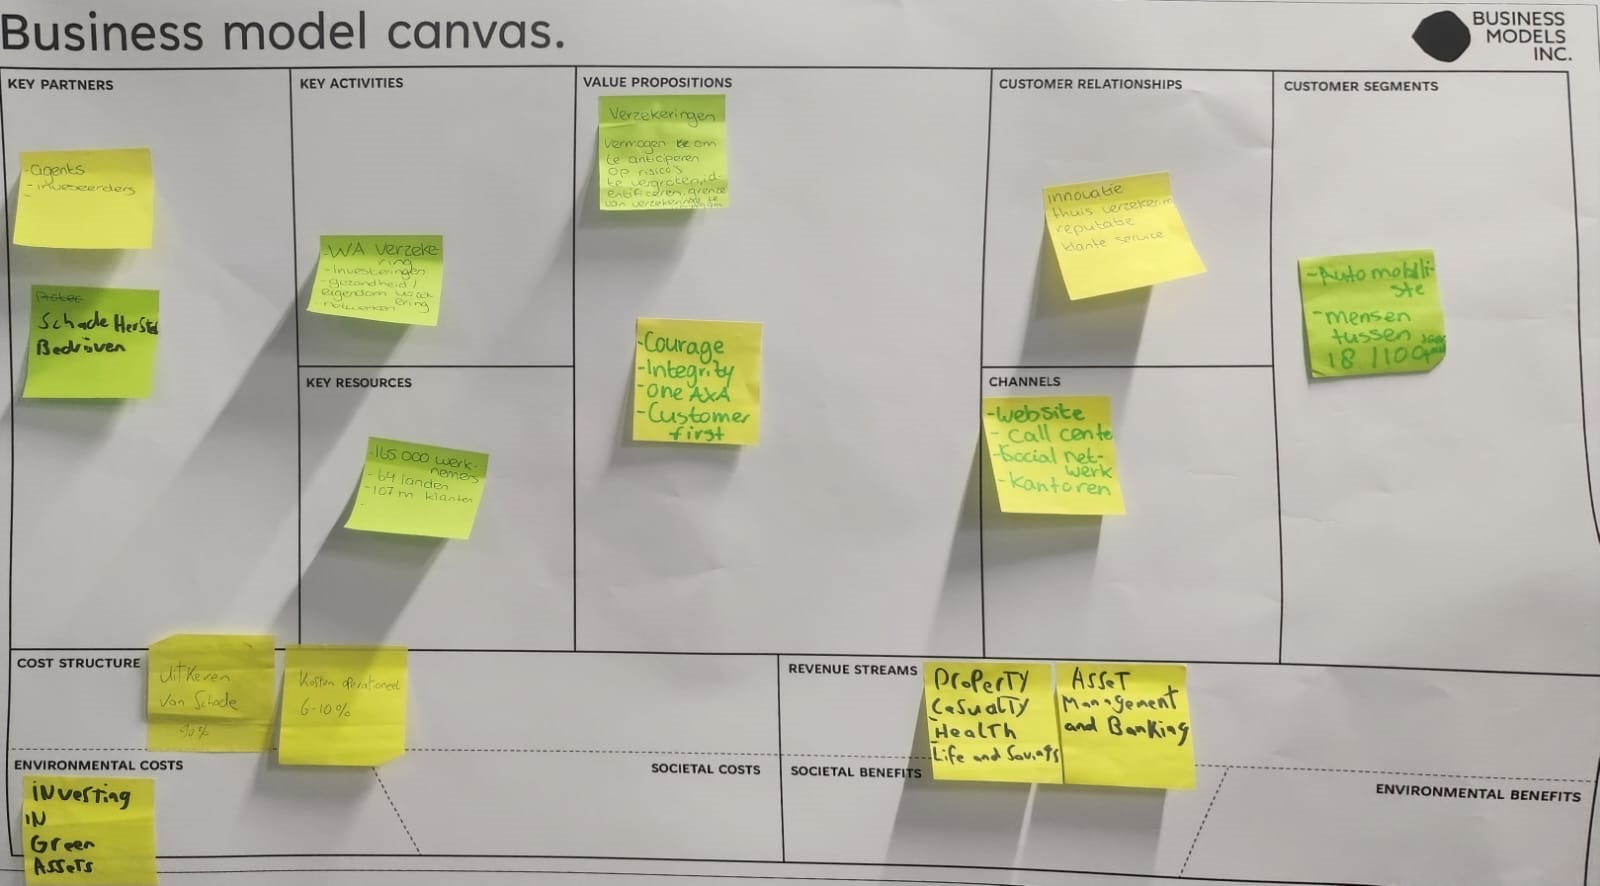 Business model canvas.
BUSINESS
MODELS
INC.
KEY PARTNERS
-agents
- investeerders
-
Schade Herstel
Bedrijven
KEY ACTIVITIES
-WA verzeke
ring
- Investeringen
- gezondheid /
eigendom verzek
ering
- netwerken
KEY RESOURCES
-165 000 werk-
nemers
-64 landen
-107 m klanten
-
VALUE PROPOSITIONS
Verzekeringen
vermogen om
te anticiperen
op risico's
te vergroten, id-
entificeren, grenze
van verzekering te
-Courage
-Integrity
-One AXA
-Customer
first
CUSTOMER RELATIONSHIPS
innovatie
thuis verzekerin
reputatie
klante service
CHANNELS
-website
- Call cente
-Social net-
werk
-Kantoren
CUSTOMER SEGMENTS
-Automobili-
ste
-mensen
tussen
18 / 100
COST STRUCTURE
uitkeren
van Schade
90%
Kosten operationeel
6-10%
REVENUE STREAMS
Property
Casualty
-Health
Life and Savings
Asset
Management
and Banking
ENVIRONMENTAL COSTS
iNverting
IN
Green
Assets
SOCIETAL COSTS
SOCIETAL BENEFITS
ENVIRONMENTAL BENEFITS